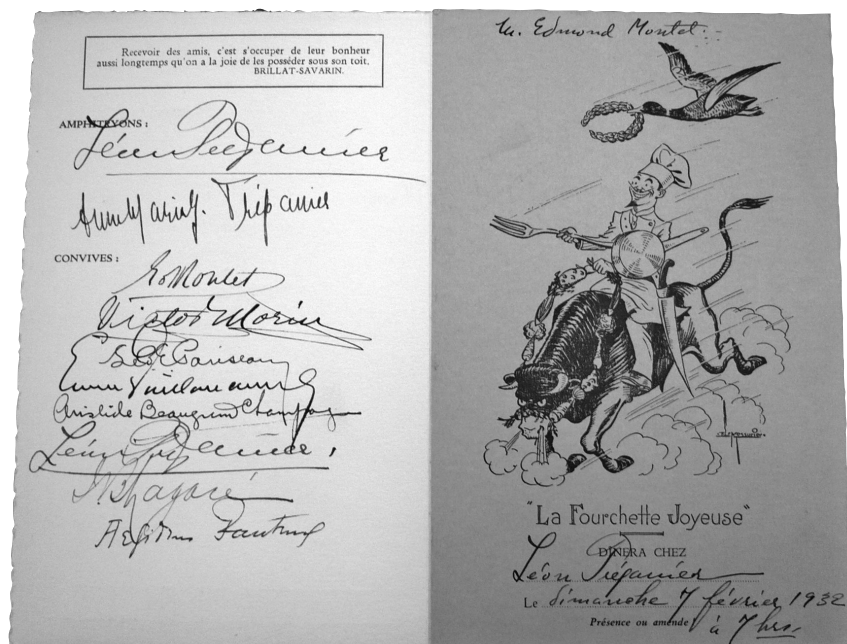 Recevoir des amis, c'est s'occuper de leur bonheur
aussi longtemps qu'on a la joie de les posséder sous son toit.
BRILLAT-SAVARIN.
AMPHITRYONS :
Léon Trépanier
Anne-Marie J. Trépanier
CONVIVES :
Ed Montet
Victor Morin
Aristide Beaugrand Champagne
Léon Trépanier
Aegidius Fauteux
M. Edmond Montet.
"La Fourchette Joyeuse"
DÎNERA CHEZ
Léon Trépanier
Le dimanche 7 février 1932
Présence ou amende à 7 hrs.